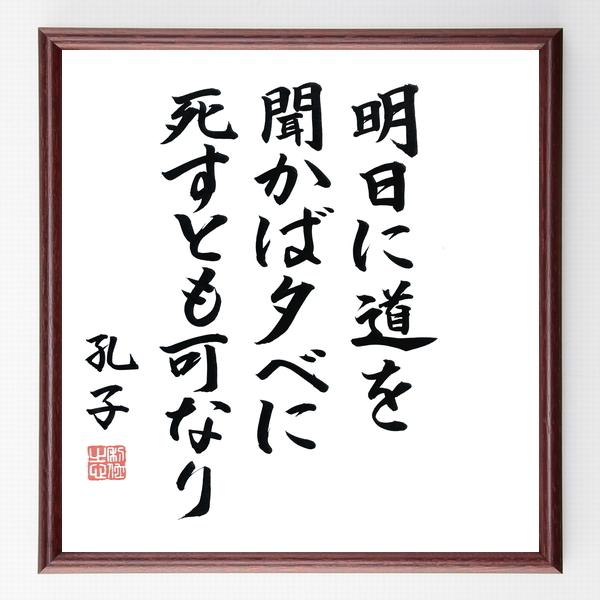 明日に道を
聞かば夕べに
死すとも可なり
孔子